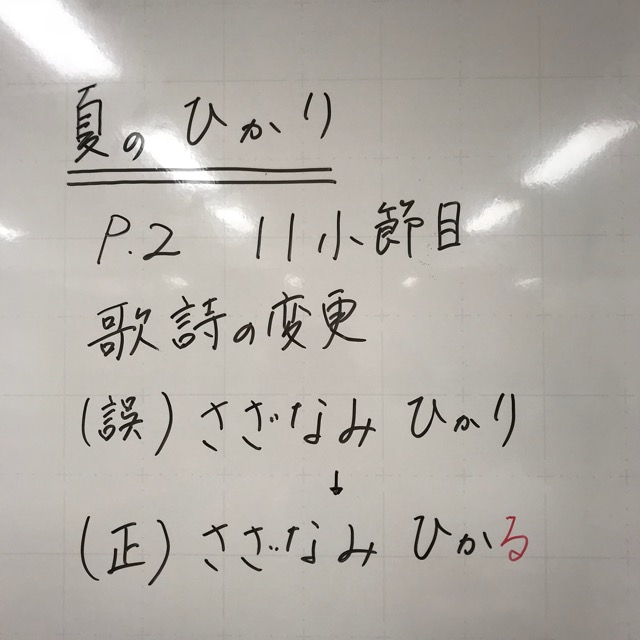 夏のひかり
P.2 11小節目
歌詩の変更
(誤) さざなみ ひかり
↓
(正) さざなみ ひかる